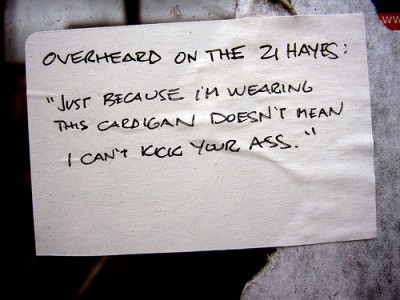 OVERHEARD ON THE 21 HAYES:
"JUST BECAUSE I'M WEARING
THIS CARDIGAN DOESN'T MEAN
I CAN'T KICK YOUR ASS."
WW